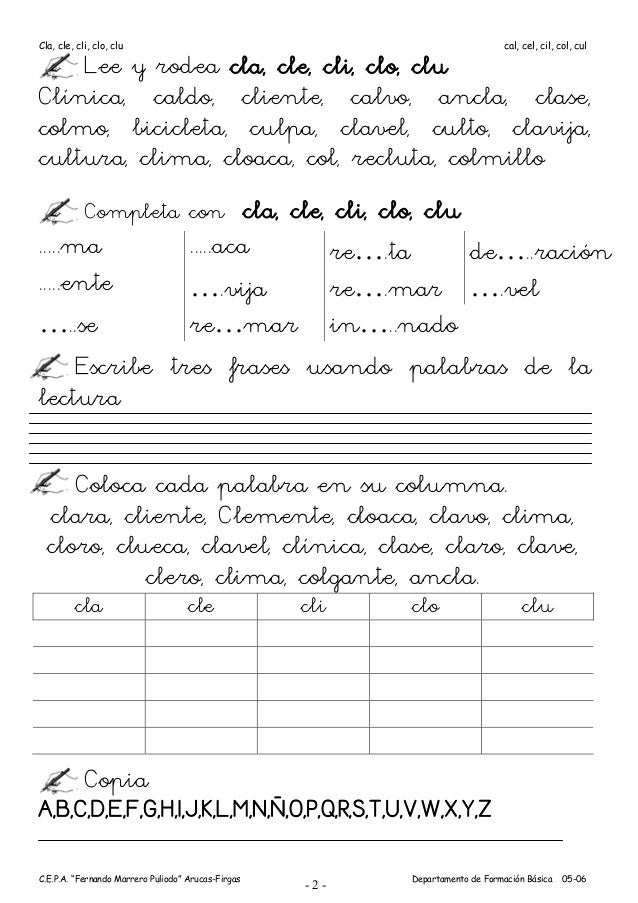 Cla, cle, cli, clo, clu cal, cel, cil, col, cul
Lee y rodea cla, cle, cli, clo, clu
Clínica, caldo, cliente, calvo, ancla, clase,
colmo, bicicleta, culpa, clavel, culto, clavija,
cultura, clima, cloaca, col, recluta, colmillo
Completa con cla, cle, cli, clo, clu
.....ma .....aca re....ta de.....ración
.....ente ....vija re....mar ....vel
.....se re...mar in.....nado
Escribe tres frases usando palabras de la
lectura
Coloca cada palabra en su columna.
clara, cliente, Clemente, cloaca, clavo, clima,
cloro, clueca, clavel, clínica, clase, claro, clave,
clero, clima, colgante, ancla.
cla cle cli clo clu
Copia
A,B,C,D,E,F,G,H,I,J,K,L,M,N,Ñ,O,P,Q,R,S,T,U,V,W,X,Y,Z
C.E.P.A. "Fernando Marrero Puliodo" Arucas-Firgas Departamento de Formación Básica 05-06
- 2 -